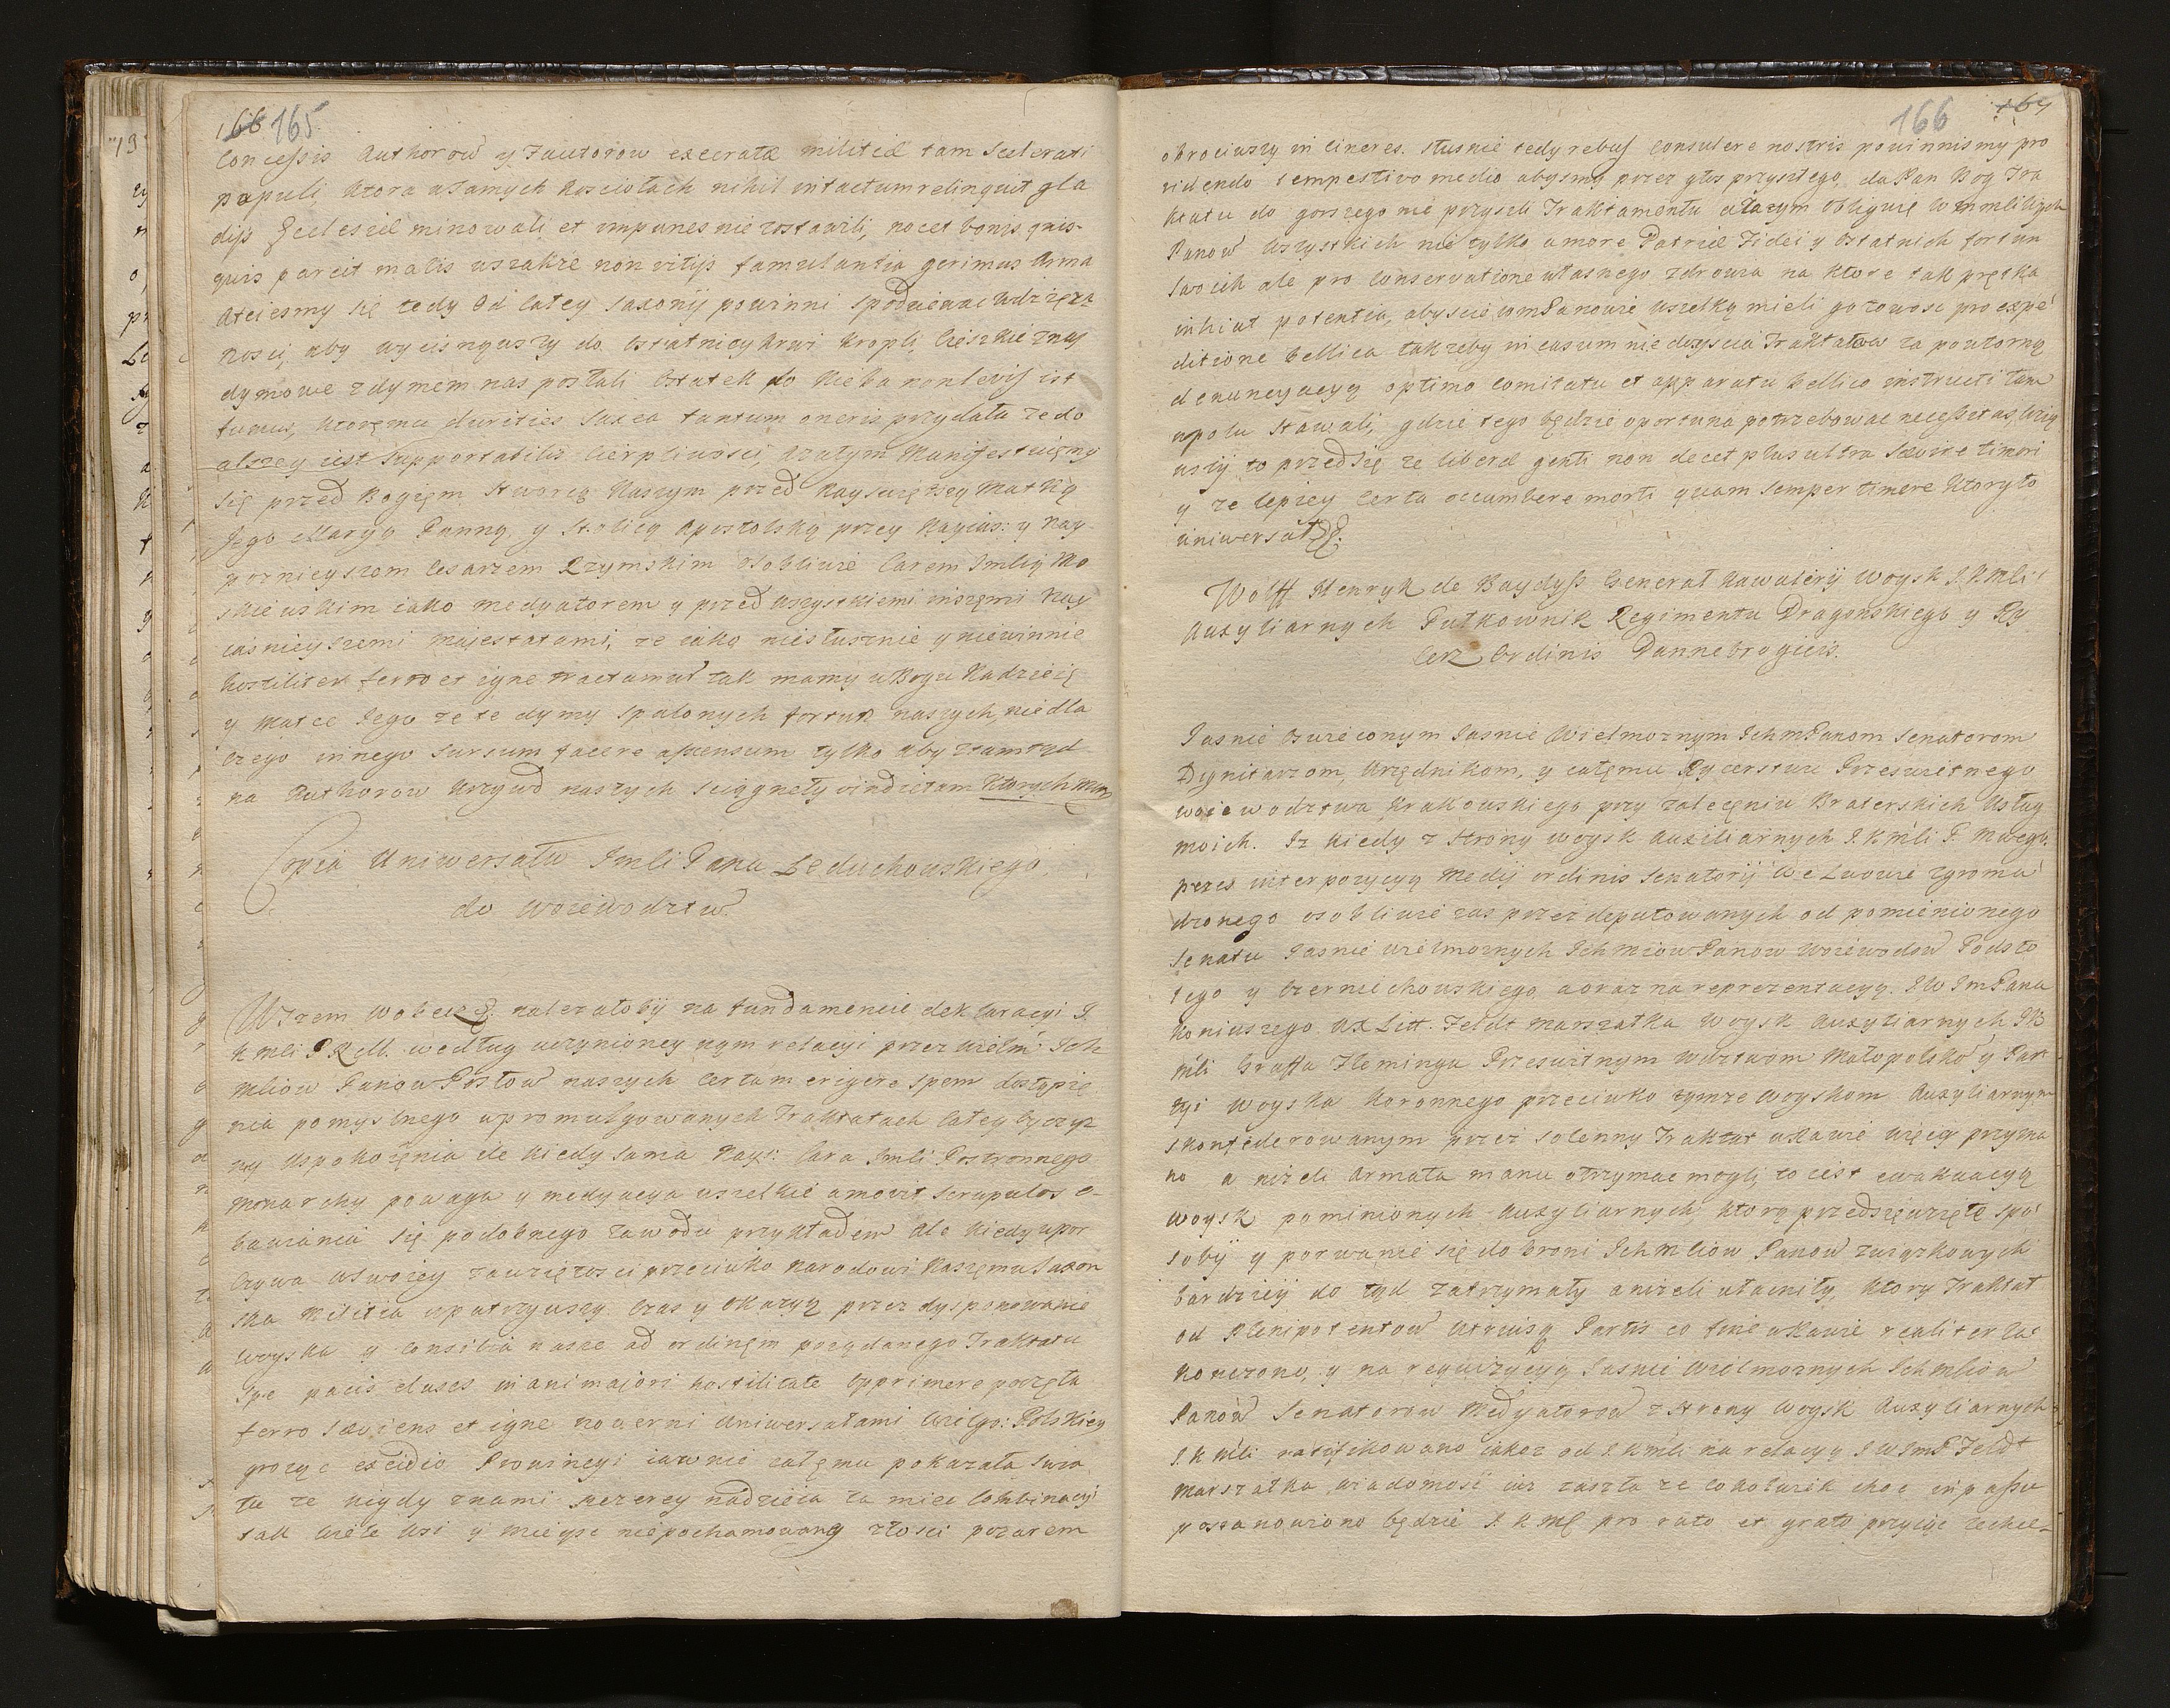 166 165
Concessis Authorow y Fautorow execratæ militiæ tam scelerati
populi, ktora w samych kosciołach nihil intactum relinquit gla
dijs Ecclesiæ minowali et impunes nie zostawili, nocet bonis quis-
quis parcit malis wszakze non vitijs famulantia gerimus Arma
Atciesmy się tedy od całey Saxonij powinni spodziewac wdzięcz
nosci, aby wycisnąwszy do ostatniey krwi kropli, cieszkie znas
dymowe z dymem nas posłali ostatek do Nieba non levis est
fumus, ktoręmu durities Saxea tantum oneris przydała ze do
alszey iest supportabilis cierpliwosci, azatym Manifestuięmy
się przed Bogięm Stworcą Naszym przed Nayswiętszą Matką
Jego Maryą Panną, y Stolicą Apostolską przey Nayias: y Nay
yoznieyszom Cesarzem Rzymskim osobliwie Carem Jmścią Mo
skiewskim iako medyatorem y przed wszystkiemi inszęmi Nay
iasnieyszemi Majestatami, ze iako niesłusznie y niewinnie
hostiliter ferro et igne tractamur tak mamy w Bogu Nadzieię
y Matce Jego ze te dymy spalonych fortun naszych, nie dla
czego innego sursum facere ascensum tylko aby ztamtąd
na Authorow krzywd naszych sciągnęły vindictam ktorych Man
Copia Uniwersału Jmści Pana Leduchowskiego
do Woiewodztw.
Wszem wobec &. nalezałoby na fundamencie deklaracyi J.
K Mści P. N M. według uczynioney nąm relacyi przez Wielm: Ich
Mściow Panow Posłow naszych certam erigere spem dostąpię
nia pomyslnego w promulgowanych Traktatach całey Oyczyz
ny uspokoięnia ile kiedy sama Nays: Cara Jmści Postronnego
Monarchy powaga y medyacya wszelkie amovit scrupulos o-
bawiania się podobnego zawodu przykładem ale kiedy upor
czywa w swoiey zawziętosci przeciwko Narodowi Naszęmu Saxon
ska Militia upatrzywszy czas y okazyą przez dysponowanie
woyska y consilia nasze ad ordinęm pożądanego Traktatu
spe pacis elusos in ani majori hostilitate opprimere poczęła
ferro sæviens et igne no. erni Uniwersałami Wielgo: Polskiey
grożąc excidio Prowincyi iawnie całęmu pokazała swia
tu ze nigdy znami szczerey nadzieia za miec combinacyi
tak wiele wsi y mieysc niepochamowaną złosci pożarem
166 167
obrociwszy in cineres. słusnie tedy rebus consulere nostris powinnismy pro
videndo tempestivo medio abysmy przez głos przyszłego, da Pan Bog Tra
ktatu do gorszego nie przyszli Traktamentu a tazym Obliguię WmMściwych
Panow wszystkich nie tylko amore Patriæ Fidei y ostatnich fortun
swoich ale pro conservatione własnego zdrowia na ktore tak prętka
inhiat potentia, abyscie WmPanowie wszelką mieli gotowosc pro expe
ditione bellica tak zeby in casum nie doyscia Traktatow za powtorną
denuncyacyą optimo comitatu et apparatu bellico instructi tam
w polu stawali, gdzie tego będzie oportuna potrzebowac necessitas, wzią
wszy to przed się ze liberæ genti non decet plus ultra sævire timori
y ze lepiey certa occumbere morti quam semper timere ktory to
Uniwersał &.
Wolff Henryk de Baydyß Generał Kawalerij Woysk J. K Mści
Auxyliarnych Pułkownik Regimentu Dragonskiego y Ry
cerz Ordinis Dannebrogicis.
Jasnie Oswieconym Jasnie Wielmożnym IchmPanom Senatorom
Dignitarzom, Urzędnikom, y całęmu Rycerstwu Przeswietnego
Woiewodztwa Krakowskiego przy zalecęniu Braterskich Usług
moich. Iz kiedy z strony woysk Auxiliarnych J. K Mści P. Naszego
przez interpozycyą Medij ordinis Senatorij we Lwowie zgroma
dzonego osobliwie zas przez deputowanych od pomienionego
Senatu Jasnie Wielmoznych Ichmciow Panow Woiewodow Podsto
lego y Czerniechowskiego a oraz na reprezentacyą. J W JmPana
Koniuszego W X Litt. Feldt Marszałka Woysk Auxyliarnych J K
Mści Graffa Fleminga Przeswietnym Wdztwom Małopolskim y Par
tyi Woyska Koronnego przeciwko tymze Woyskom Auxyliarnym
skonfederowanym przez solenny Traktat w Rawie więcey przyzna
no a nizeli armata manu otrzymac mogli, to iest ewakuacyą
Woysk pomienionych Auxyliarnych, ktorą przedsięwzięte spo
soby y porwanie się do broni Ichmściow Panow związkowych
bardziey do tąd zatrzymały anizeli ułacniły, ktory Traktat
od Plenipotentow utriusq Partis co fine w Rawie realiter za
konczono, y na requizycyą Jasnie Wielmoznych Ichmściow
Panow Senatorow Medyatorow z strony Woysk Auxyliarnych
J. K Mści ratifikowano iakoz od J. K Mści na relacyą J W JmP Feldt
Marszałka wiadomosć iuz zaszła ze cokolwiek choc in passu
postanowiono będzie J. K Mć pro rato et grato przyiąc zechce-